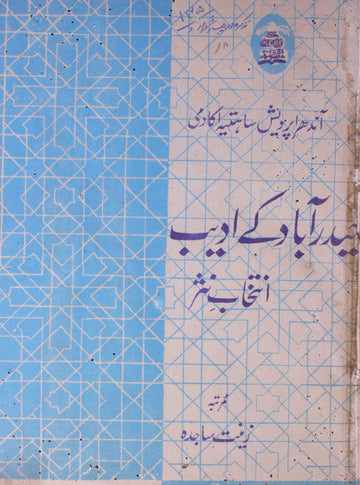 ۱۸
آندھرا پردیش ساہتیہ اکادمی
حیدرآباد کے ادیب
انتخابِ نثر
مرتبہ
زینت ساجدہ